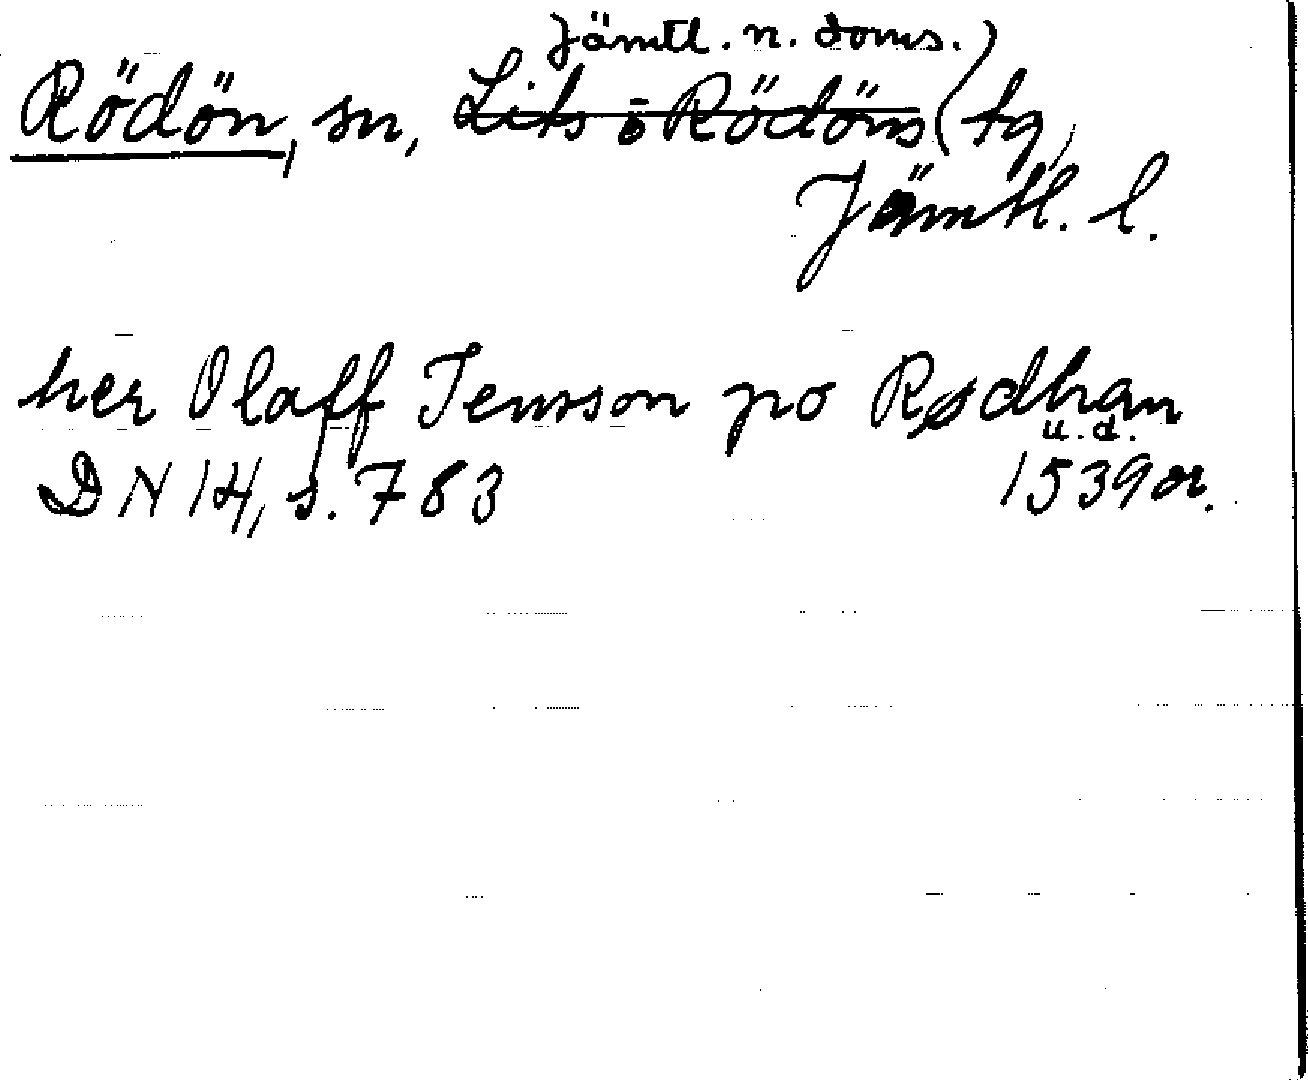 Jämtl. n. doms.
Rödön, sn, Lits o Rödöns tg,
Jämtl. l.
her Olaff Jensson po Rødhøn
u.d.
DN 14, s. 783 1539 or.